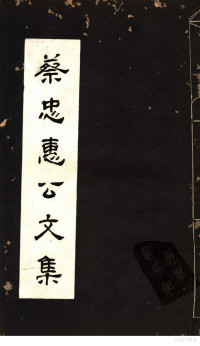 蔡忠惠公文集